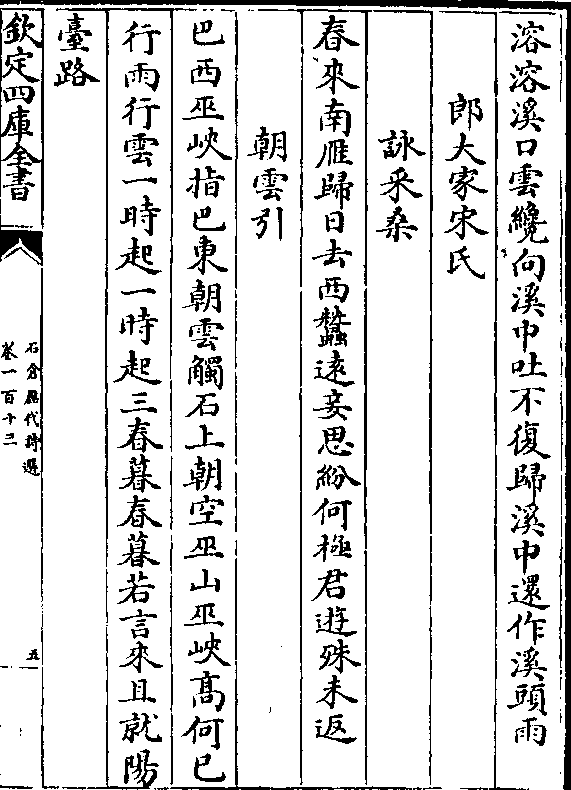 溶溶溪口雲纔向溪中吐不復歸溪中還作溪頭雨
郎大家宋氏
詠采桑
春來南雁歸日去西蠶遠妾思紛何極君遊殊未返
朝雲引
巴西巫峽指巴東朝雲觸石上朝空巫山巫峽髙何已
行雨行雲一時起一時起三春暮春暮若言來且就陽
臺路
欽定四庫全書
石倉歴代詩選
卷一百十三
五